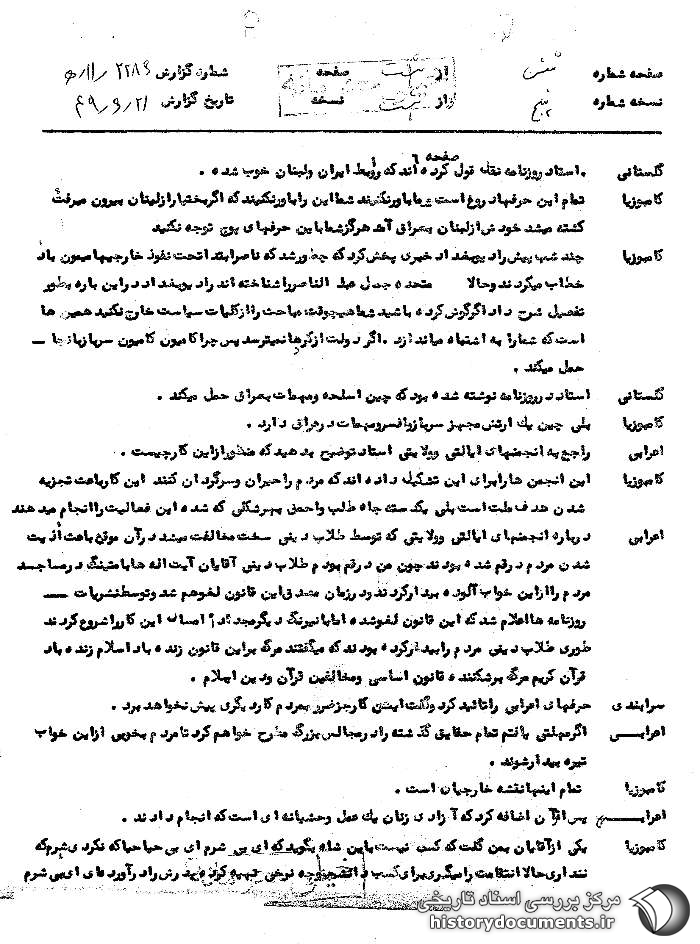 صفحه شماره شش از بیست صفحه شماره گزارش ۵/۱۱/۲۲۸۶
نسخه شماره پنج از بیست نسخه تاریخ گزارش ۴۹/۶/۲۱
صفحه ۶
گلستانی . استاد روزنامه نقله قول کرده اند که روابط ایران ولبنان خوب شده .
کامبوزیا تمام این حرفها دروغ است شما باور نکنید شما این را باور نکنید که اگر بختیار از لبنان بیرون میرفت
کشته میشد خودش از لبنان بعراق آمد هرگز شما باین حرفهای پوچ توجه نکنید
کامبوزیا چند شب پیش رادیو بغداد خبری پخش کرد که چطور شد که ناصر ابتدا تحت نفوذ خارجیها میمون باد
خطاب میکردند و حالا متحده جمال عبد الناصر را شناخته اند رادیو بغداد در این باره بطور
تفصیل شرح داد اگر گوش کرده باشید شما هیچوقت مباحث را از کلیات سیاست خارج نکنید همین ها
است که شما را به اشتباه میاندازد . اگر دولت از کردها نمیترسد پس چرا کامیون کامیون سرباز بانجا —
حمل میکند .
گلستانی استاد در روزنامه نوشته شده بود که چین اسلحه ومهمات بعراق حمل میکند .
کامبوزیا بلی چین یك ارتش مجهز سرباز وافسر ومهمات در عراق دارد .
اعرابی راجع به انجمنهای ایالتی وولایتی استاد توضیح بدهید که منظور از این کار چیست .
کامبوزیا این انجمن ها را برای این تشکیل داده اند که مردم را حیران وسرگردان کنند این کار باعث تجزیه
شدن هدف ملت است بلی یکدسته جاه طلب واحمق بهر شکلی که شده این فعالیت را انجام میدهند
اعرابی درباره انجمنهای ایالتی وولایتی که توسط طلاب دینی سخت مخالفت میشد در آن موقع باعث اذیت
شدن مردم در قم شده بودند چون من در قم بودم طلاب دینی آقایان آیت اله ها با متینگ در مساجد
مردم را از این خواب آلوده بیدار کردند ودر زمان مصدق این قانون لغو هم شد وتوسط نشریات —
روزنامه ها اعلام شد که این قانون لغو شده اما با نیرنگ دیگر مجددا امسال این کار را شروع کردند
طوری طلاب دینی مردم را بیدار کرده بودند که میگفتند مرگ بر این قانون زنده باد اسلام زنده باد
قرآن کریم مرگ بر شکننده قانون اساسی ومخالفین قرآن ودین اسلام .
سرابندی حرفهای اعرابی را تائید کرد وگفت این کار جز ضرر بمردم کار دیگری پیش نخواهد برد .
اعرابی اگر مهلتی یافتم تمام حقایق گذشته را در مجالس بزرگ مطرح خواهم کرد تا مردم بخوبی از این خواب
تیره بیدار شوند .
کامبوزیا تمام اینها نقشه خارجیان است .
اعرابی پس از آن اضافه کرد که آزادی زنان یك عمل وحشیانه ای است که انجام دادند .
کامبوزیا یکی از آقایان بمن گفت که کسی نیست باین شاه بگوید که ای بی شرم ای بی حیا حیا که نکردی شرم که
نداری حالا انتقامت را میگیری برای کسب تهیه کرده پدرش را درآورده ای ای بی شرم
مرکز بررسی اسناد تاریخی
historydocuments.ir